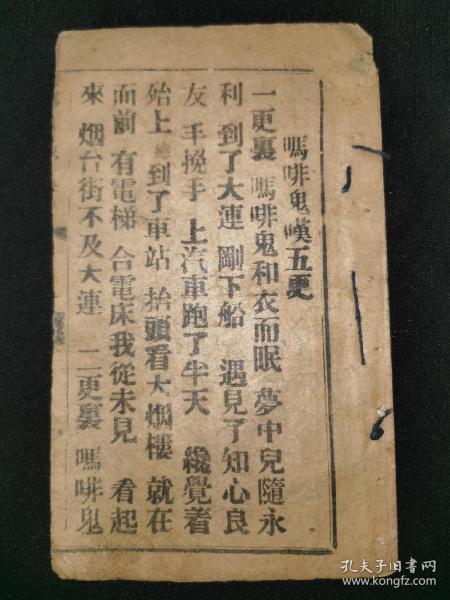 嗎啡鬼嘆五更
一更裏 嗎啡鬼和衣而眠 夢中兒隨永
利 到了大連 剛下船 遇見了知心良
友 手挽手 上汽車跑了半天 纔覺着
殆上 總到了車站 抬頭看大烟樓 就在
面前 有電梯 合電床我從未見 看起
來 烟台街不及大連 二更裏 嗎啡鬼
孔夫子旧书网
www.kongfz.com